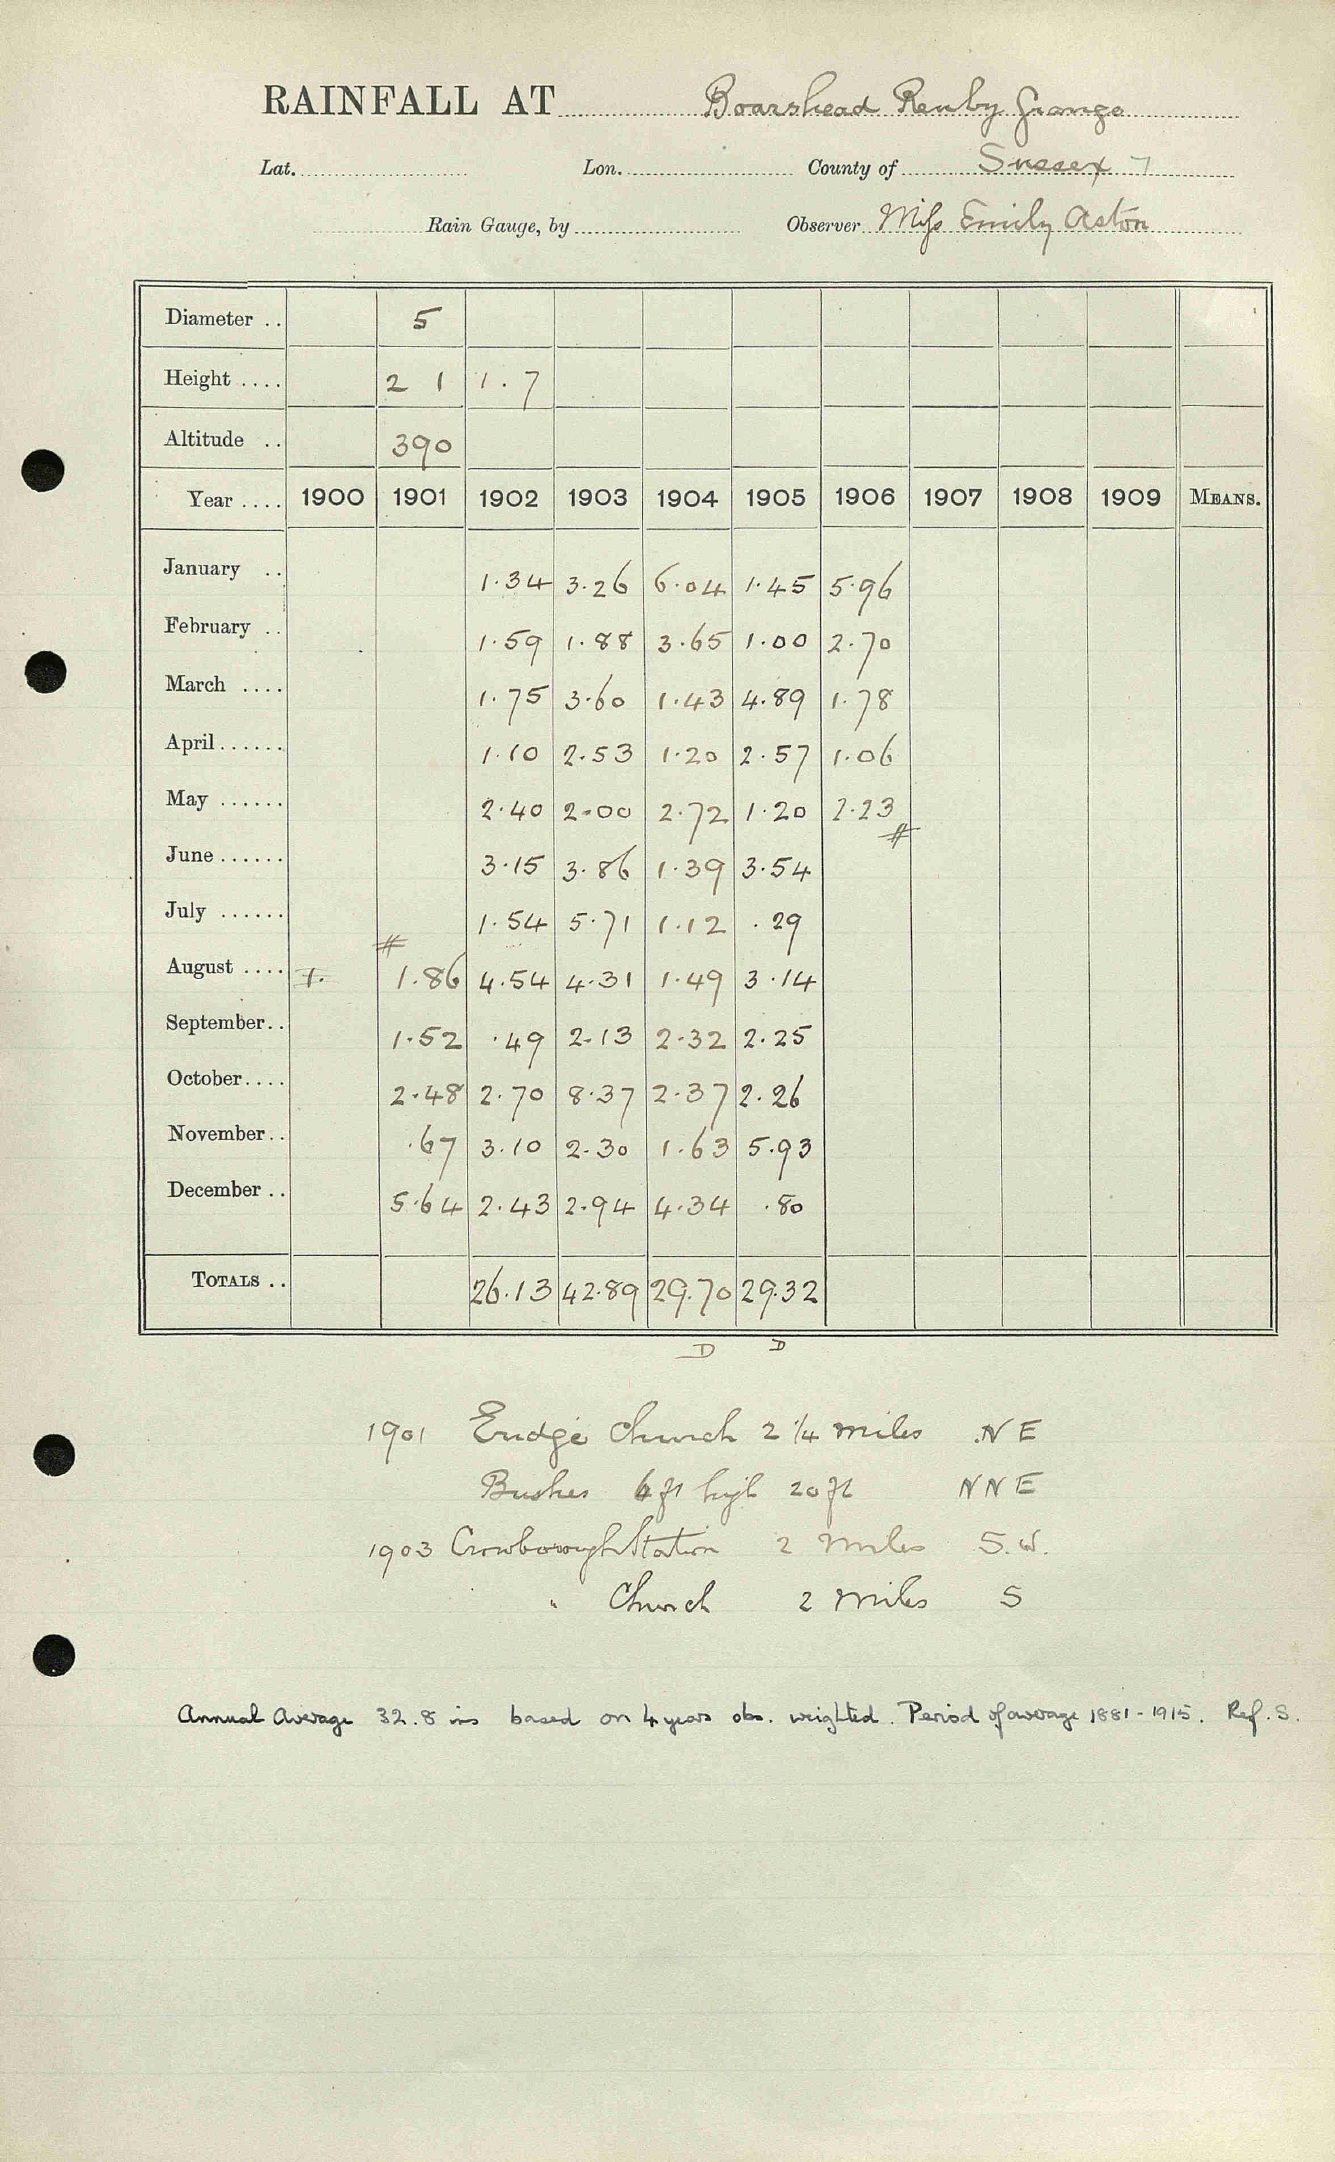 RAINFALL AT Boarshead Renby Grange
Lat. Lon. County of Sussex 7
Rain Gauge, by Observer Miss Emily Aston
Diameter .. 5
Height .... 2 1 1.7
Altitude .. 390
Year .... 1900 1901 1902 1903 1904 1905 1906 1907 1908 1909 MEANS.
January .. 1.34 3.26 6.04 1.45 5.96
February .. 1.59 1.88 3.65 1.00 2.70
March .... 1.75 3.60 1.43 4.89 1.78
April ...... 1.10 2.53 1.20 2.57 1.06
May ...... 2.40 2.00 2.72 1.20 2.23
June ...... 3.15 3.86 1.39 3.54
July ...... 1.54 5.71 1.12 .29
August .... 1. 1.86 4.54 4.31 1.49 3.14
September.. 1.52 .49 2.13 2.32 2.25
October.... 2.48 2.70 8.37 2.37 2.26
November.. .67 3.10 2.30 1.63 5.93
December .. 5.64 2.43 2.94 4.34 .80
TOTALS .. 26.13 42.89 29.70 29.32
D D
1901 Eridge Church 2 1/4 miles NE
Bushes 6 ft high 20 ft NNE
1903 Crowborough Station 2 miles S.W.
" Church 2 miles S
Annual Average 32.8 ins based on 4 years obs. weighted. Period of average 1881-1915. Ref. S.